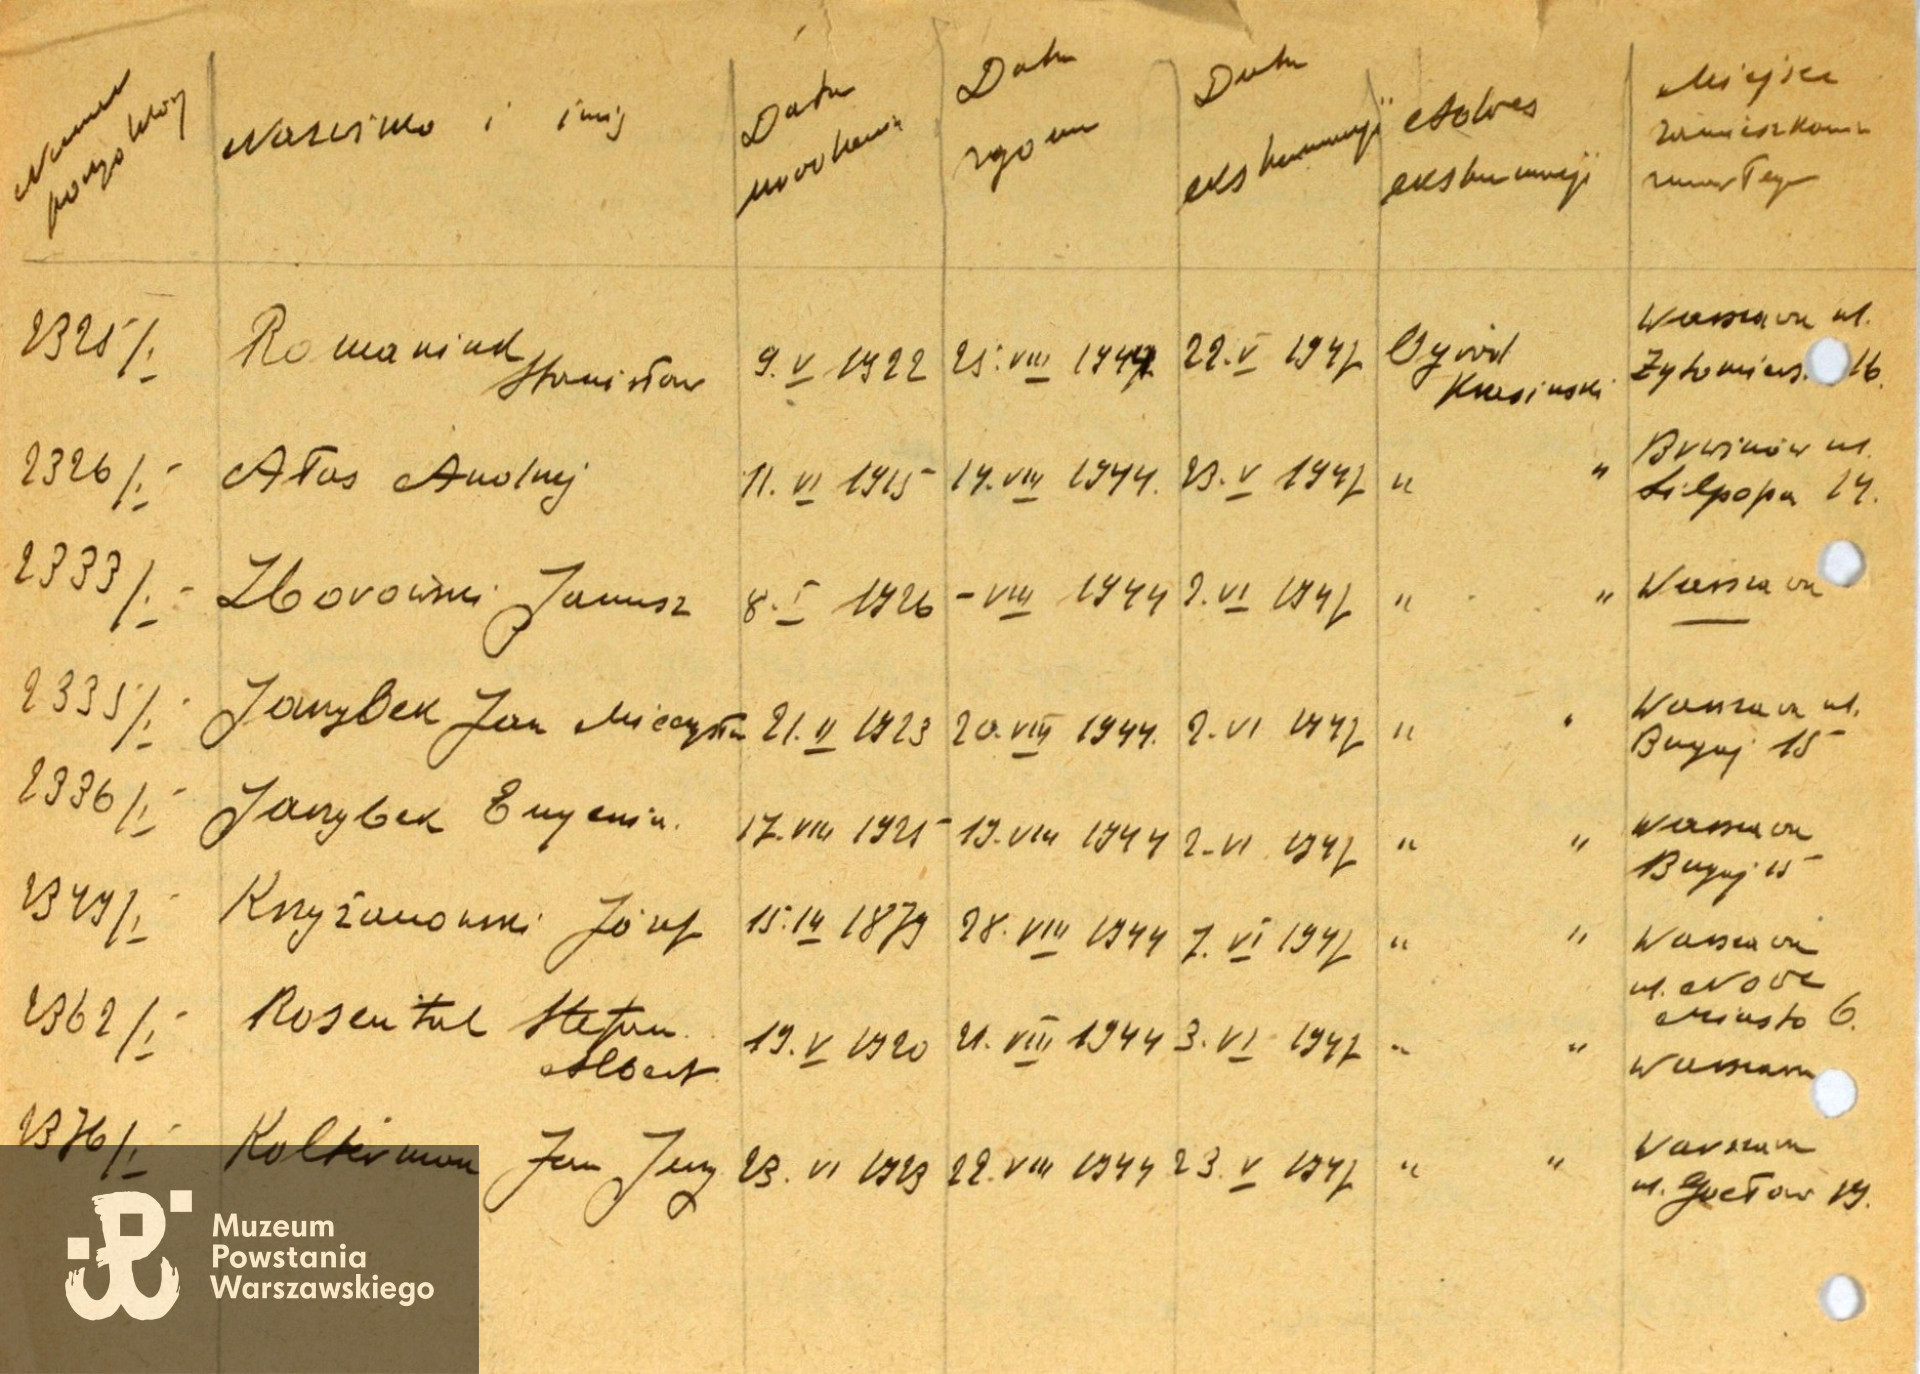 Numer porządkowy Nazwisko i imię Data urodzenia Data zgonu Data ekshumacji Adres ekshumacji Miejsce zamieszkania zmarłego
2325/I Romaniuk Stanisław 9. V 1922 25. VIII 1944 22. V 1947 Ogród Krasiński Warszawa ul. Żytomiers. 16.
2326/I Ałas Andrzej 11. VI 1915 14. VIII 1944. 23. V 1947 " " Brwinów ul. Lilpopa 14.
2333/I Zborowski Janusz 8. I 1926 - VIII 1944 2. VI 1947 " " Warszawa
2335/I Janzybek Jan Mieczysław 21. II 1923 20. VIII 1944. 2. VI 1947 " " Warszawa ul. Bugaj 15
2336/I Janzybek Eugenia. 17. VIII 1925 19. VIII 1944 2. VI 1947 " " Warszawa Bugaj 15
2349/I Krzyżanowski Józef 15. IV 1879 28. VIII 1944 7. VI 1947 " " Warszawa ul. Nowe Miasto 6.
2362/I Rosental Stefan Albert 19. V 1920 21. VIII 1944 3. VI 1947 " " Warszawa
2376/I Jan Jerzy 23. VI 1923 22. VIII 1944 23. V 1947 " " Warszawa ul. 19.
Muzeum
Powstania
Warszawskiego